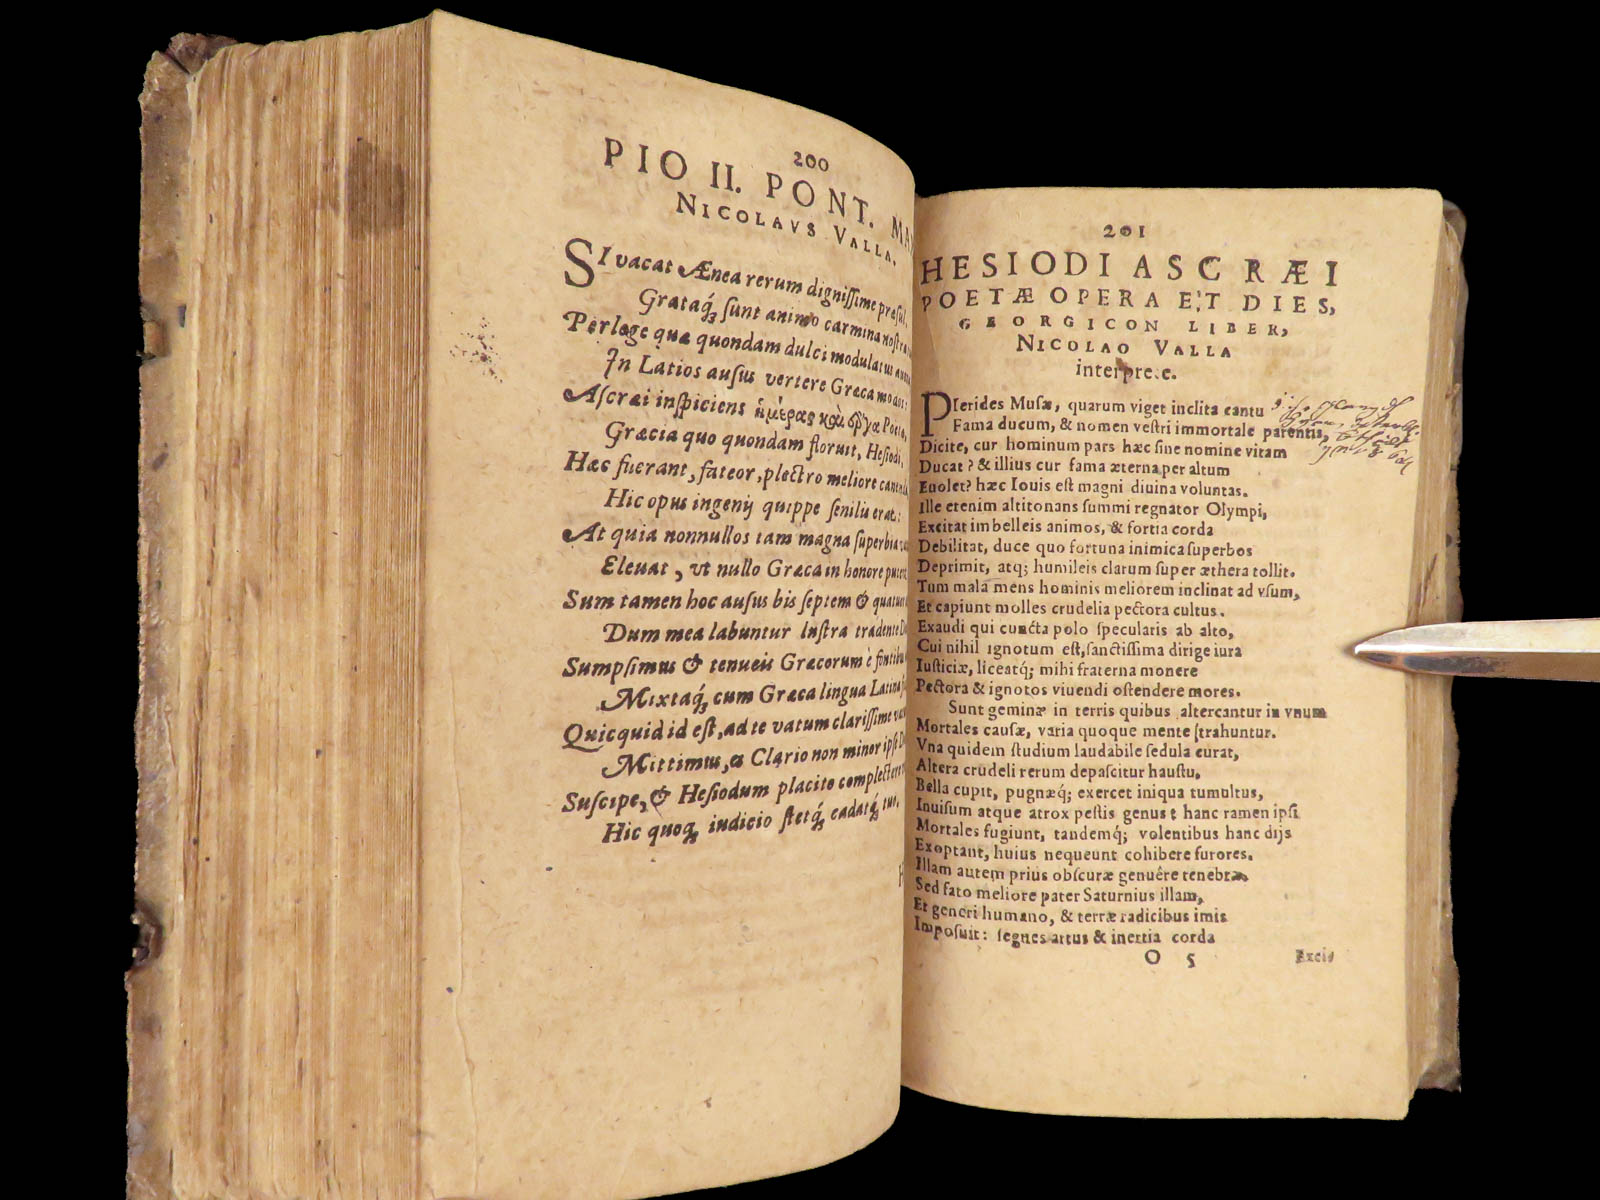 200
PIO II. PONT. MA
NICOLAVS VALLA.
SI vacat Ænea rerum digniſſime præſul,
Grataq́; ſunt animo carmina noſtra
Perlege quæ quondam dulci modulatus
In Latios auſus vertere Græca modos:
Aſcræi inſpiciens ἡμέρας καὶ ἔργα Poetæ,
Græcia quo quondam floruit, Heſiodi,
Hæc fuerant, fateor, plectro meliore
Hic opus ingenij quippe ſenilis erat:
At quia nonnullos tam magna ſuperbia
Eleuat, vt nullo Græca in honore
Sum tamen hoc auſus bis ſeptem & quatuor
Dum mea labuntur luſtra tradente
Sumpſimus & tenueis Græcorum è fontibus
Mixtaq́; cum Græca lingua Latina
Quicquid id eſt, ad te vatum clariſſime
Mittimus, a Clario non minor ipſe
Suſcipe, & Heſiodum placito
Hic quoq; iudicio ſtetq́; cadatq́; tuo.
H
201
HESIODI ASCRÆI
POETÆ OPERA ET DIES,
GEORGICON LIBER,
NICOLAO VALLA
interprete.
PIerides Muſæ, quarum viget inclita cantu
Fama ducum, & nomen veſtri immortale parentis,
Dicite, cur hominum pars hæc ſine nomine vitam
Ducat? & illius cur fama æterna per altum
Euolet? hæc Iouis eſt magni diuina voluntas.
Ille etenim altitonans ſummi regnator Olympi,
Excitat imbelleis animos, & fortia corda
Debilitat, duce quo fortuna inimica ſuperbos
Deprimit, atq; humileis clarum ſuper æthera tollit.
Tum mala mens hominis meliorem inclinat ad vſum,
Et capiunt molles crudelia pectora cultus.
Exaudi qui cuncta polo ſpecularis ab alto,
Cui nihil ignotum eſt, ſanctiſſima dirige iura
Iuſticiæ, liceatq; mihi fraterna monere
Pectora & ignotos viuendi oſtendere mores.
Sunt geminæ in terris quibus altercantur in vnum
Mortales cauſæ, varia quoque mente ſtrahuntur.
Vna quidem ſtudium laudabile ſedula curat,
Altera crudeli rerum depaſcitur hauſtu,
Bella cupit, pugnæq́; exercet iniqua tumultus,
Inuiſum atque atrox peſtis genus: hanc tamen ipſi
Mortales fugiunt, tandemq́; volentibus hanc dijs
Exoptant, huius nequeunt cohibere furores.
Illam autem prius obſcuræ genuêre tenebræ,
Sed fato meliore pater Saturnius illam,
Et generi humano, & terræ radicibus imis
Impoſuit: ſegnes artus & inertia corda
O 5
Excit